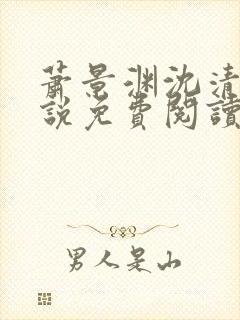 蕭景渊沈清
說免費閱讀
男人是山